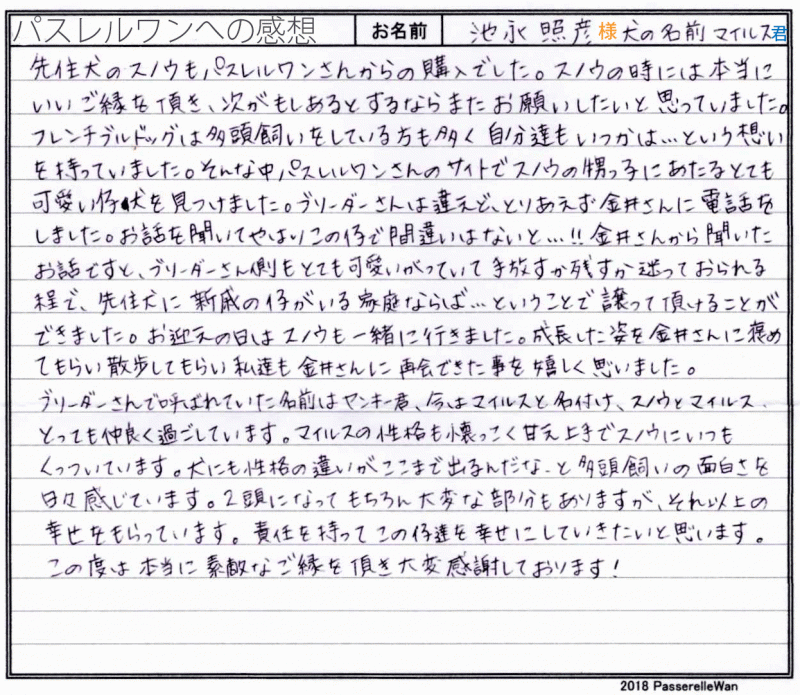 パスレルワンへの感想 お名前 池永 照彦様 犬の名前 マイルス君
先住犬のスノウもパスレルワンさんからの購入でした。スノウの時には本当に
いいご縁を頂き、次がもしあるとするならまたお願いしたいと思っていました。
フレンチブルドッグは多頭飼いをしている方も多く自分達もいつかは…という想い
を持っていました。そんな中パスレルワンさんのサイトでスノウの甥っ子にあたるとても
可愛い仔犬を見つけました。ブリーダーさんは違えど、とりあえず金井さんに電話を
しました。お話を聞いてやはりこの仔で間違いはないと…!!金井さんから聞いた
お話ですと、ブリーダーさん側もとても可愛いがっていて手放すか残すか迷っておられる
程で、先住犬に新戚の仔がいる家庭ならば…ということで譲って頂けることが
できました。お迎えの日はスノウも一緒に行きました。成長した姿を金井さんに褒め
てもらい散歩してもらい私達も金井さんに再会できた事を嬉しく思いました。
ブリーダーさんで呼ばれていた名前はヤンキー君、今はマイルスと名付け、スノウとマイルス、
とっても仲良く過ごしています。マイルスの性格も懐っこく甘え上手でスノウにいつも
くっついています。犬にも性格の違いがここまで出るんだなーと多頭飼いの面白さを
日々感じています。2頭になってもちろん大変な部分もありますが、それ以上の
幸せをもらっています。責任を持ってこの仔達を幸せにしていきたいと思います。
この度は本当に素敵なご縁を頂き大変感謝しております!
2018 PasserelleWan